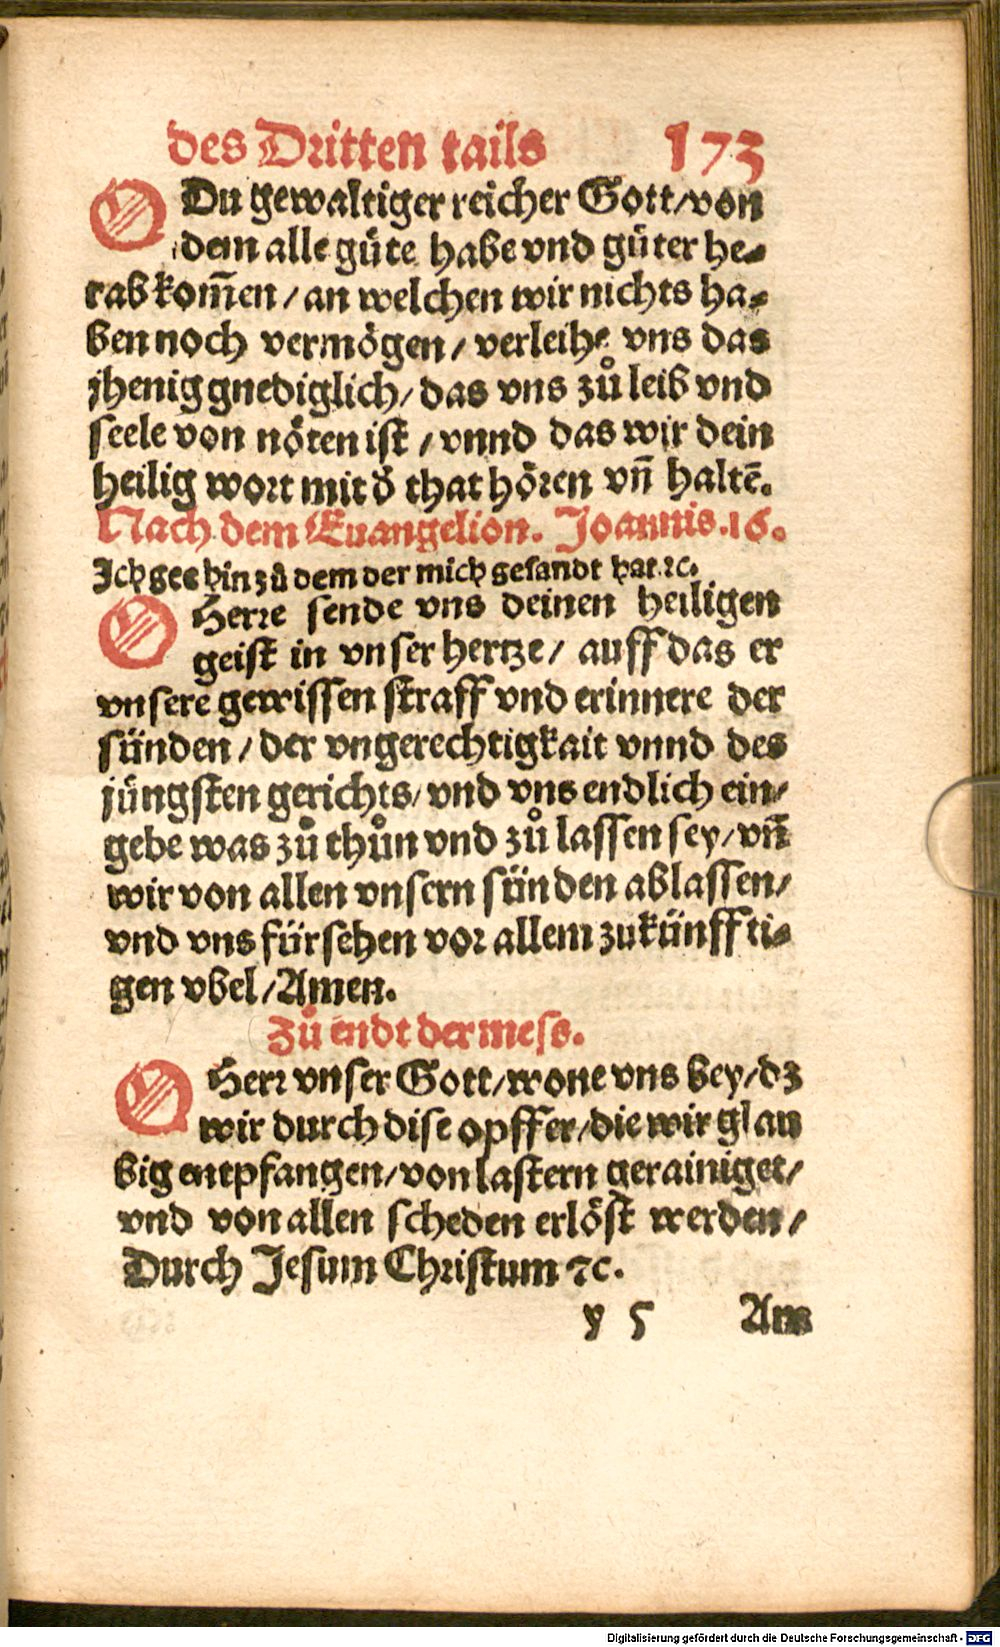 des Dritten tails 173
O Du gewaltiger reicher Gott/von
dem alle güte habe vnd güter he-
rab kom̄en/an welchen wir nichts ha-
ben noch vermögen/verleihe vns das
jhenig gnediglich/das vns zů leib vnd
seele von nöten ist/vnnd das wir dein
heilig wort mit d̕ that hören vn̄ haltē.
Nach dem Euangelion. Joannis.16.
Ich gee hin zů dem der mich gesandt hat.ꝛc.
O Herre sende vns deinen heiligen
geist in vnser hertze/ auff das er
vnsere gewissen straff vnd erinnere der
sünden/der vngerechtigkait vnnd des
jüngsten gerichts/vnd vns endlich ein/
gebe was zů thůn vnd zů lassen sey/vn̄
wir von allen vnsern sünden ablassen/
vnd vns fürsehen vor allem zukünffti-
gen vbel/Amen.
Zů endt der mess.
O Herr vnser Gott/wone vns bey/dz
wir durch dise opffer/die wir glau
big entpfangen/von lastern gerainiget/
vnd von allen scheden erlöst werden/
Durch Jesum Christum ꝛc.
y 5 Am
Digitalisierung gefördert durch die Deutsche Forschungsgemeinschaft - DFG